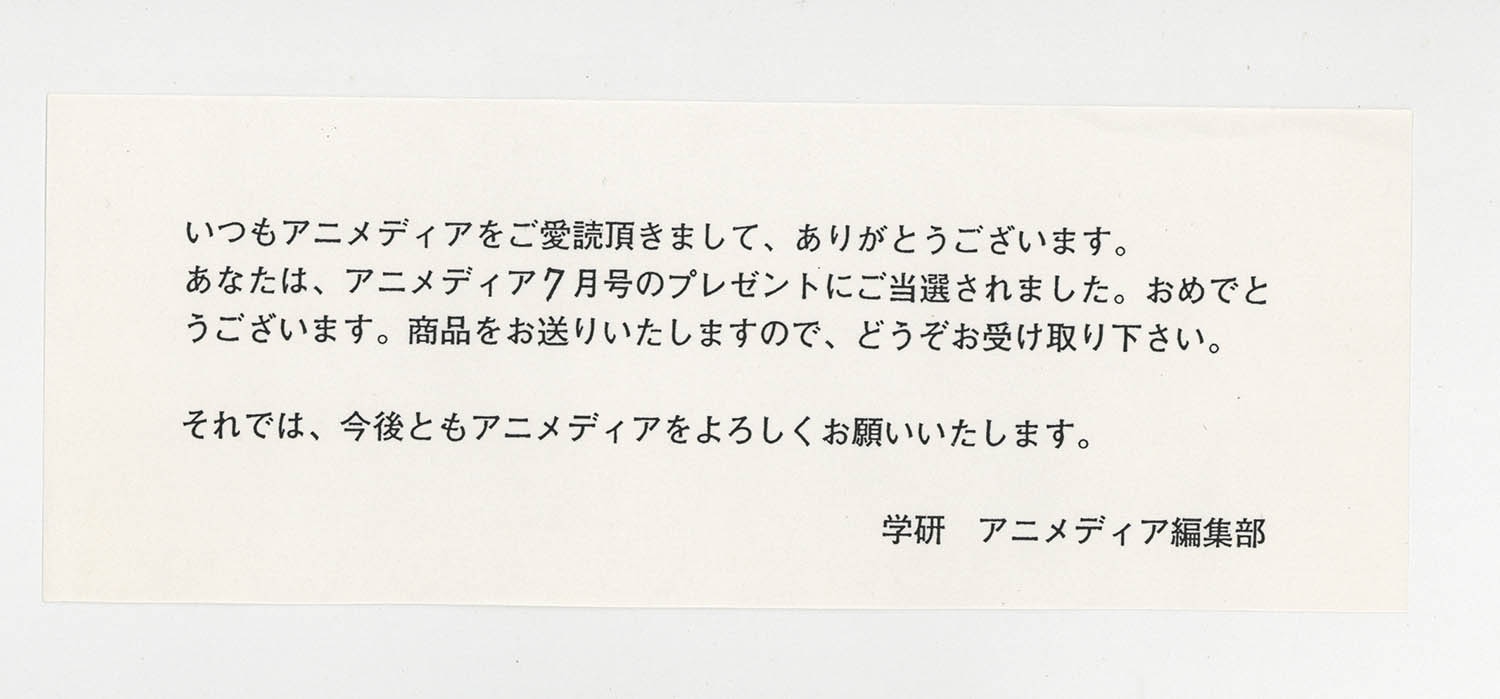 いつもアニメディアをご愛読頂きまして、ありがとうございます。
あなたは、アニメディア7月号のプレゼントにご当選されました。おめでと
うございます。商品をお送りいたしますので、どうぞお受け取り下さい。
それでは、今後ともアニメディアをよろしくお願いいたします。
学研　アニメディア編集部